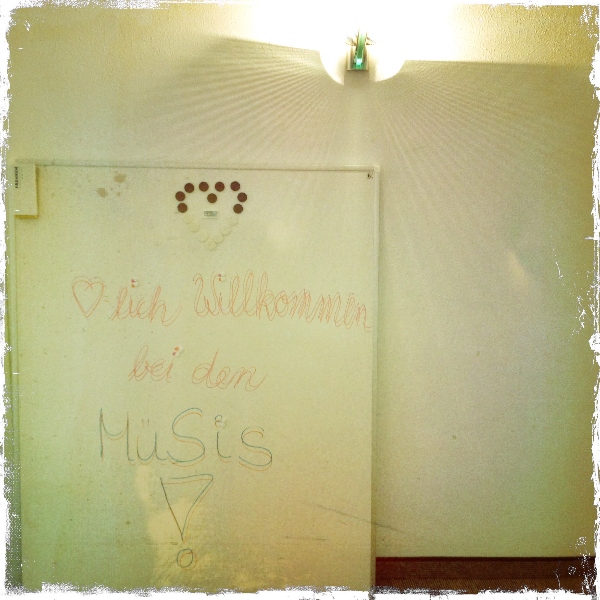 ♡-lich Willkommen
bei den
MüSiS
!